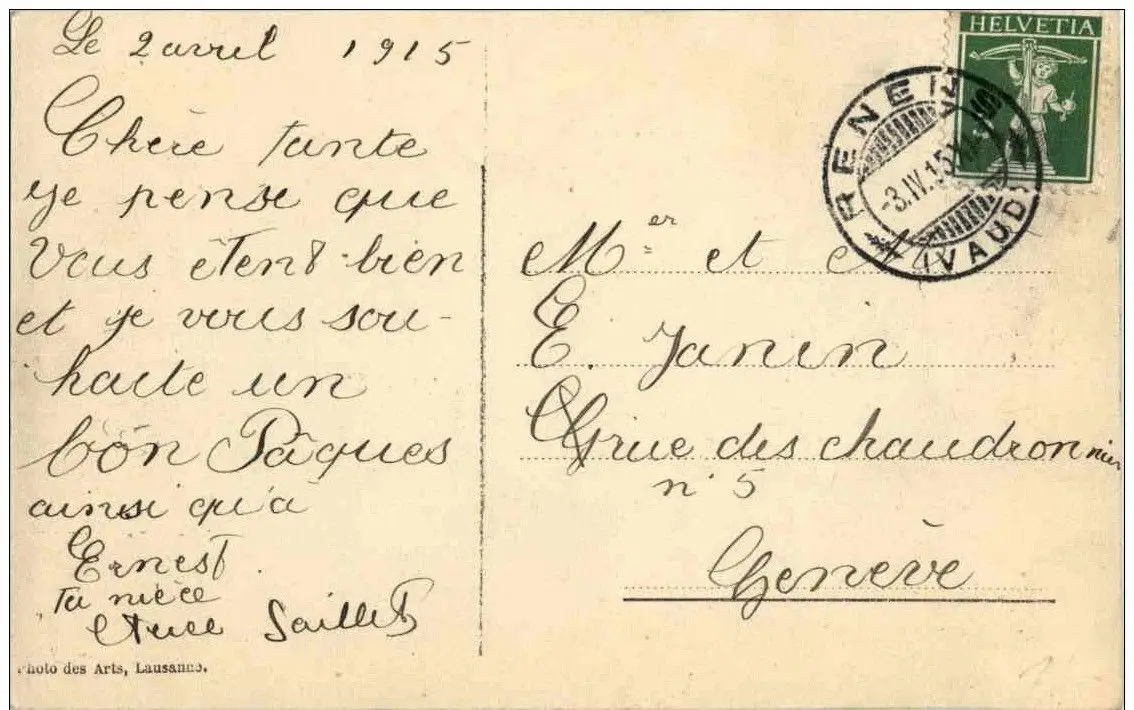 Le 2 avril 1915
Chère tante
je pense que
Vous êtent bien
et je vous sou-
haite un
bon Pâques
ainsi qu'à
Ernest.
Ta nièce
Saillet
Photo des Arts, Lausanne.
HELVETIA
RENENS
-3.IV.15
(VAUD)
Mer et
E. Janin
Grue des chaudronnier
n° 5
Genève